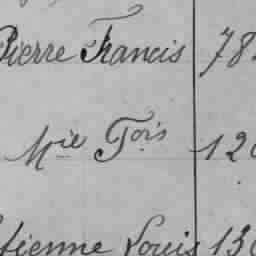 Pierre Francis 78
Mie Fois 120
Etienne Louis 130